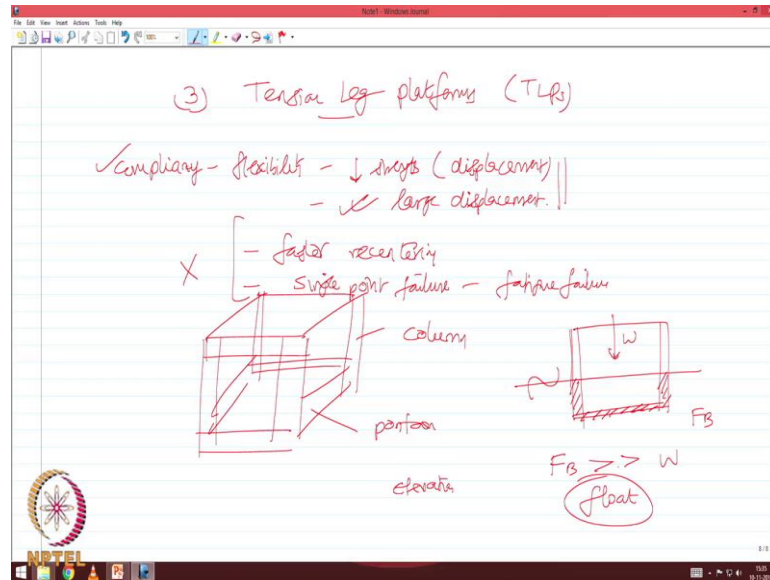 Note1 - Windows Journal
File Edit View Insert Actions Tools Help
100%
(3) Tension Leg platforms (TLPs)
✓compliancy - flexibility - ↓ (displacement)
- large displacement.
X - faster recentering
- single point failure - fatigue failure
column
W
pontoon
FB
FB >> W
float
elevation
NPTEL
8/8
15:05